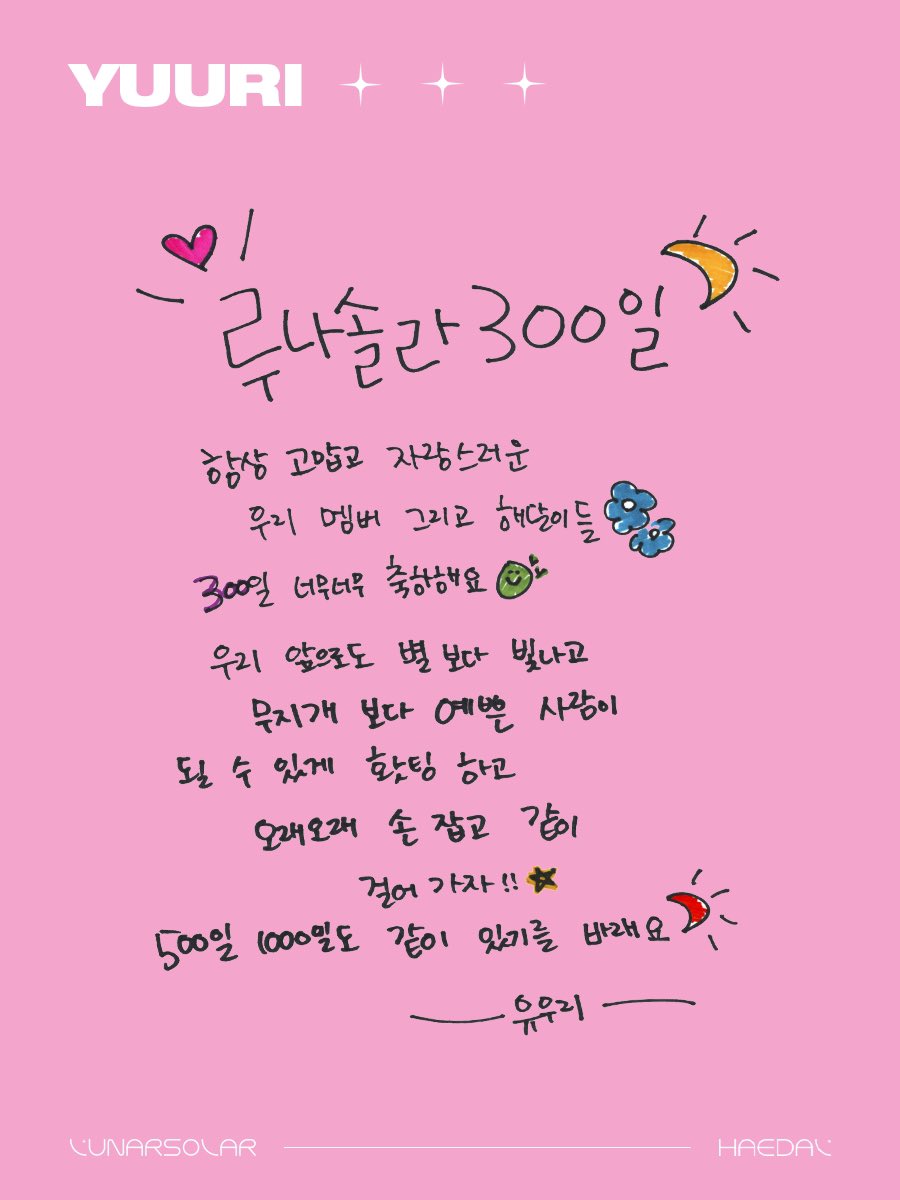 YUURI
루나솔라 300일
항상 고맙고 자랑스러운
우리 멤버 그리고 해달이들
300일 너무너무 축하해요
우리 앞으로도 별 보다 빛나고
무지개 보다 예쁜 사람이
될 수 있게 홧팅 하고
오래오래 손 잡고 같이
걸어 가자!!
500일 1000일도 같이 있기를 바래요
유우리
LUNARSOLAR HAEDAL